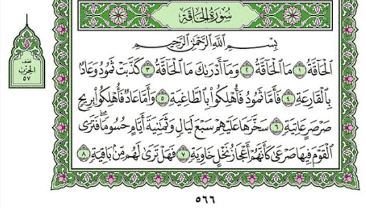 سُورَةُ الحَاقَّةِ
بِسْمِ اللَّهِ الرَّحْمَٰنِ الرَّحِيمِ
الْحَاقَّةُ ١ مَا الْحَاقَّةُ ٢ وَمَا أَدْرَىٰكَ مَا الْحَاقَّةُ ٣ كَذَّبَتْ ثَمُودُ وَعَادٌ
بِالْقَارِعَةِ ٤ فَأَمَّا ثَمُودُ فَأُهْلِكُوا بِالطَّاغِيَةِ ٥ وَأَمَّا عَادٌ فَأُهْلِكُوا بِرِيحٍ
صَرْصَرٍ عَاتِيَةٍ ٦ سَخَّرَهَا عَلَيْهِمْ سَبْعَ لَيَالٍ وَثَمَٰنِيَةَ أَيَّامٍ حُسُومًا ۖ فَتَرَى
الْقَوْمَ فِيهَا صَرْعَىٰ كَأَنَّهُمْ أَعْجَازُ نَخْلٍ خَاوِيَةٍ ٧ فَهَلْ تَرَىٰ لَهُم مِّن بَاقِيَةٍ ٨
الحزب
٥٧
٥٦٦